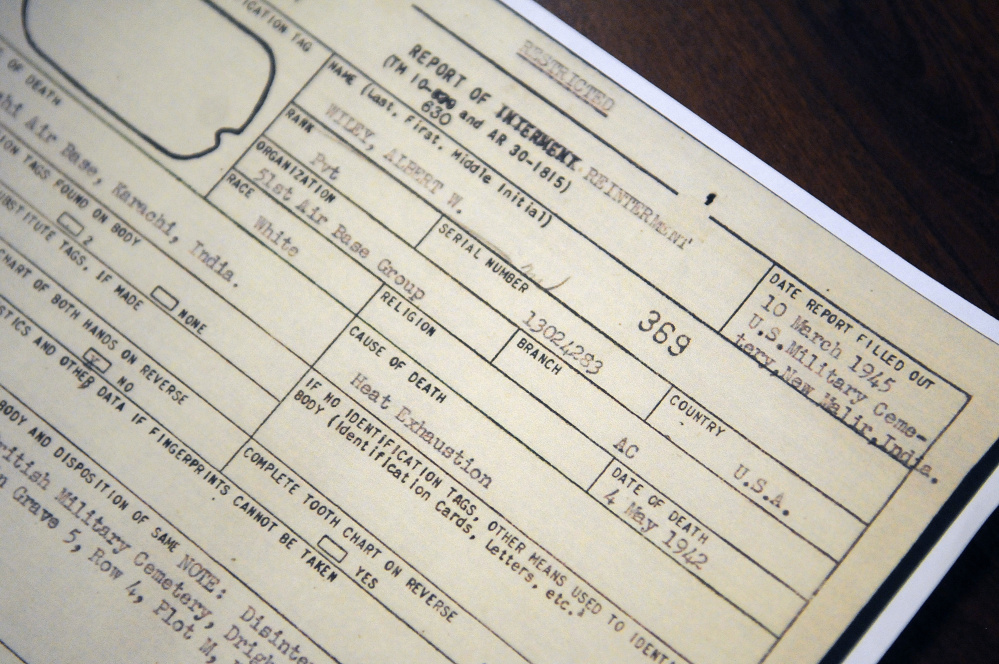 RESTRICTED
REPORT OF INTERMENT REINTERMENT
(TM 10-630 and AR 30-1815)
DATE REPORT FILLED OUT
10 March 1945
U.S. Military Ceme-
tery, New Malir, India.
ICATION TAG
NAME (Last, First, Middle Initial)
WILEY, ALBERT W.
SERIAL NUMBER
13024283
369
RANK
Pvt
ORGANIZATION
51st Air Base Group
BRANCH
AC
COUNTRY
U.S.A.
RACE
White
RELIGION
CAUSE OF DEATH
Heat Exhaustion
DATE OF DEATH
4 May 1942
OF DEATH
chi Air Base, Karachi, India.
ION TAGS FOUND ON BODY
2
UBSTITUTE TAGS, IF MADE
NONE
IF NO IDENTIFICATION TAGS, OTHER MEANS USED TO IDENTI
BODY (Identification cards, letters, etc.)
CHART OF BOTH HANDS ON REVERSE
X NO
COMPLETE TOOTH CHART ON REVERSE
YES
STICS AND OTHER DATA IF FINGERPRINTS CANNOT BE TAKEN
BODY AND DISPOSITION OF SAME NOTE: Disinte
ritish Military Cemetery, Drigh
n Grave 5, Row 4, Plot M,